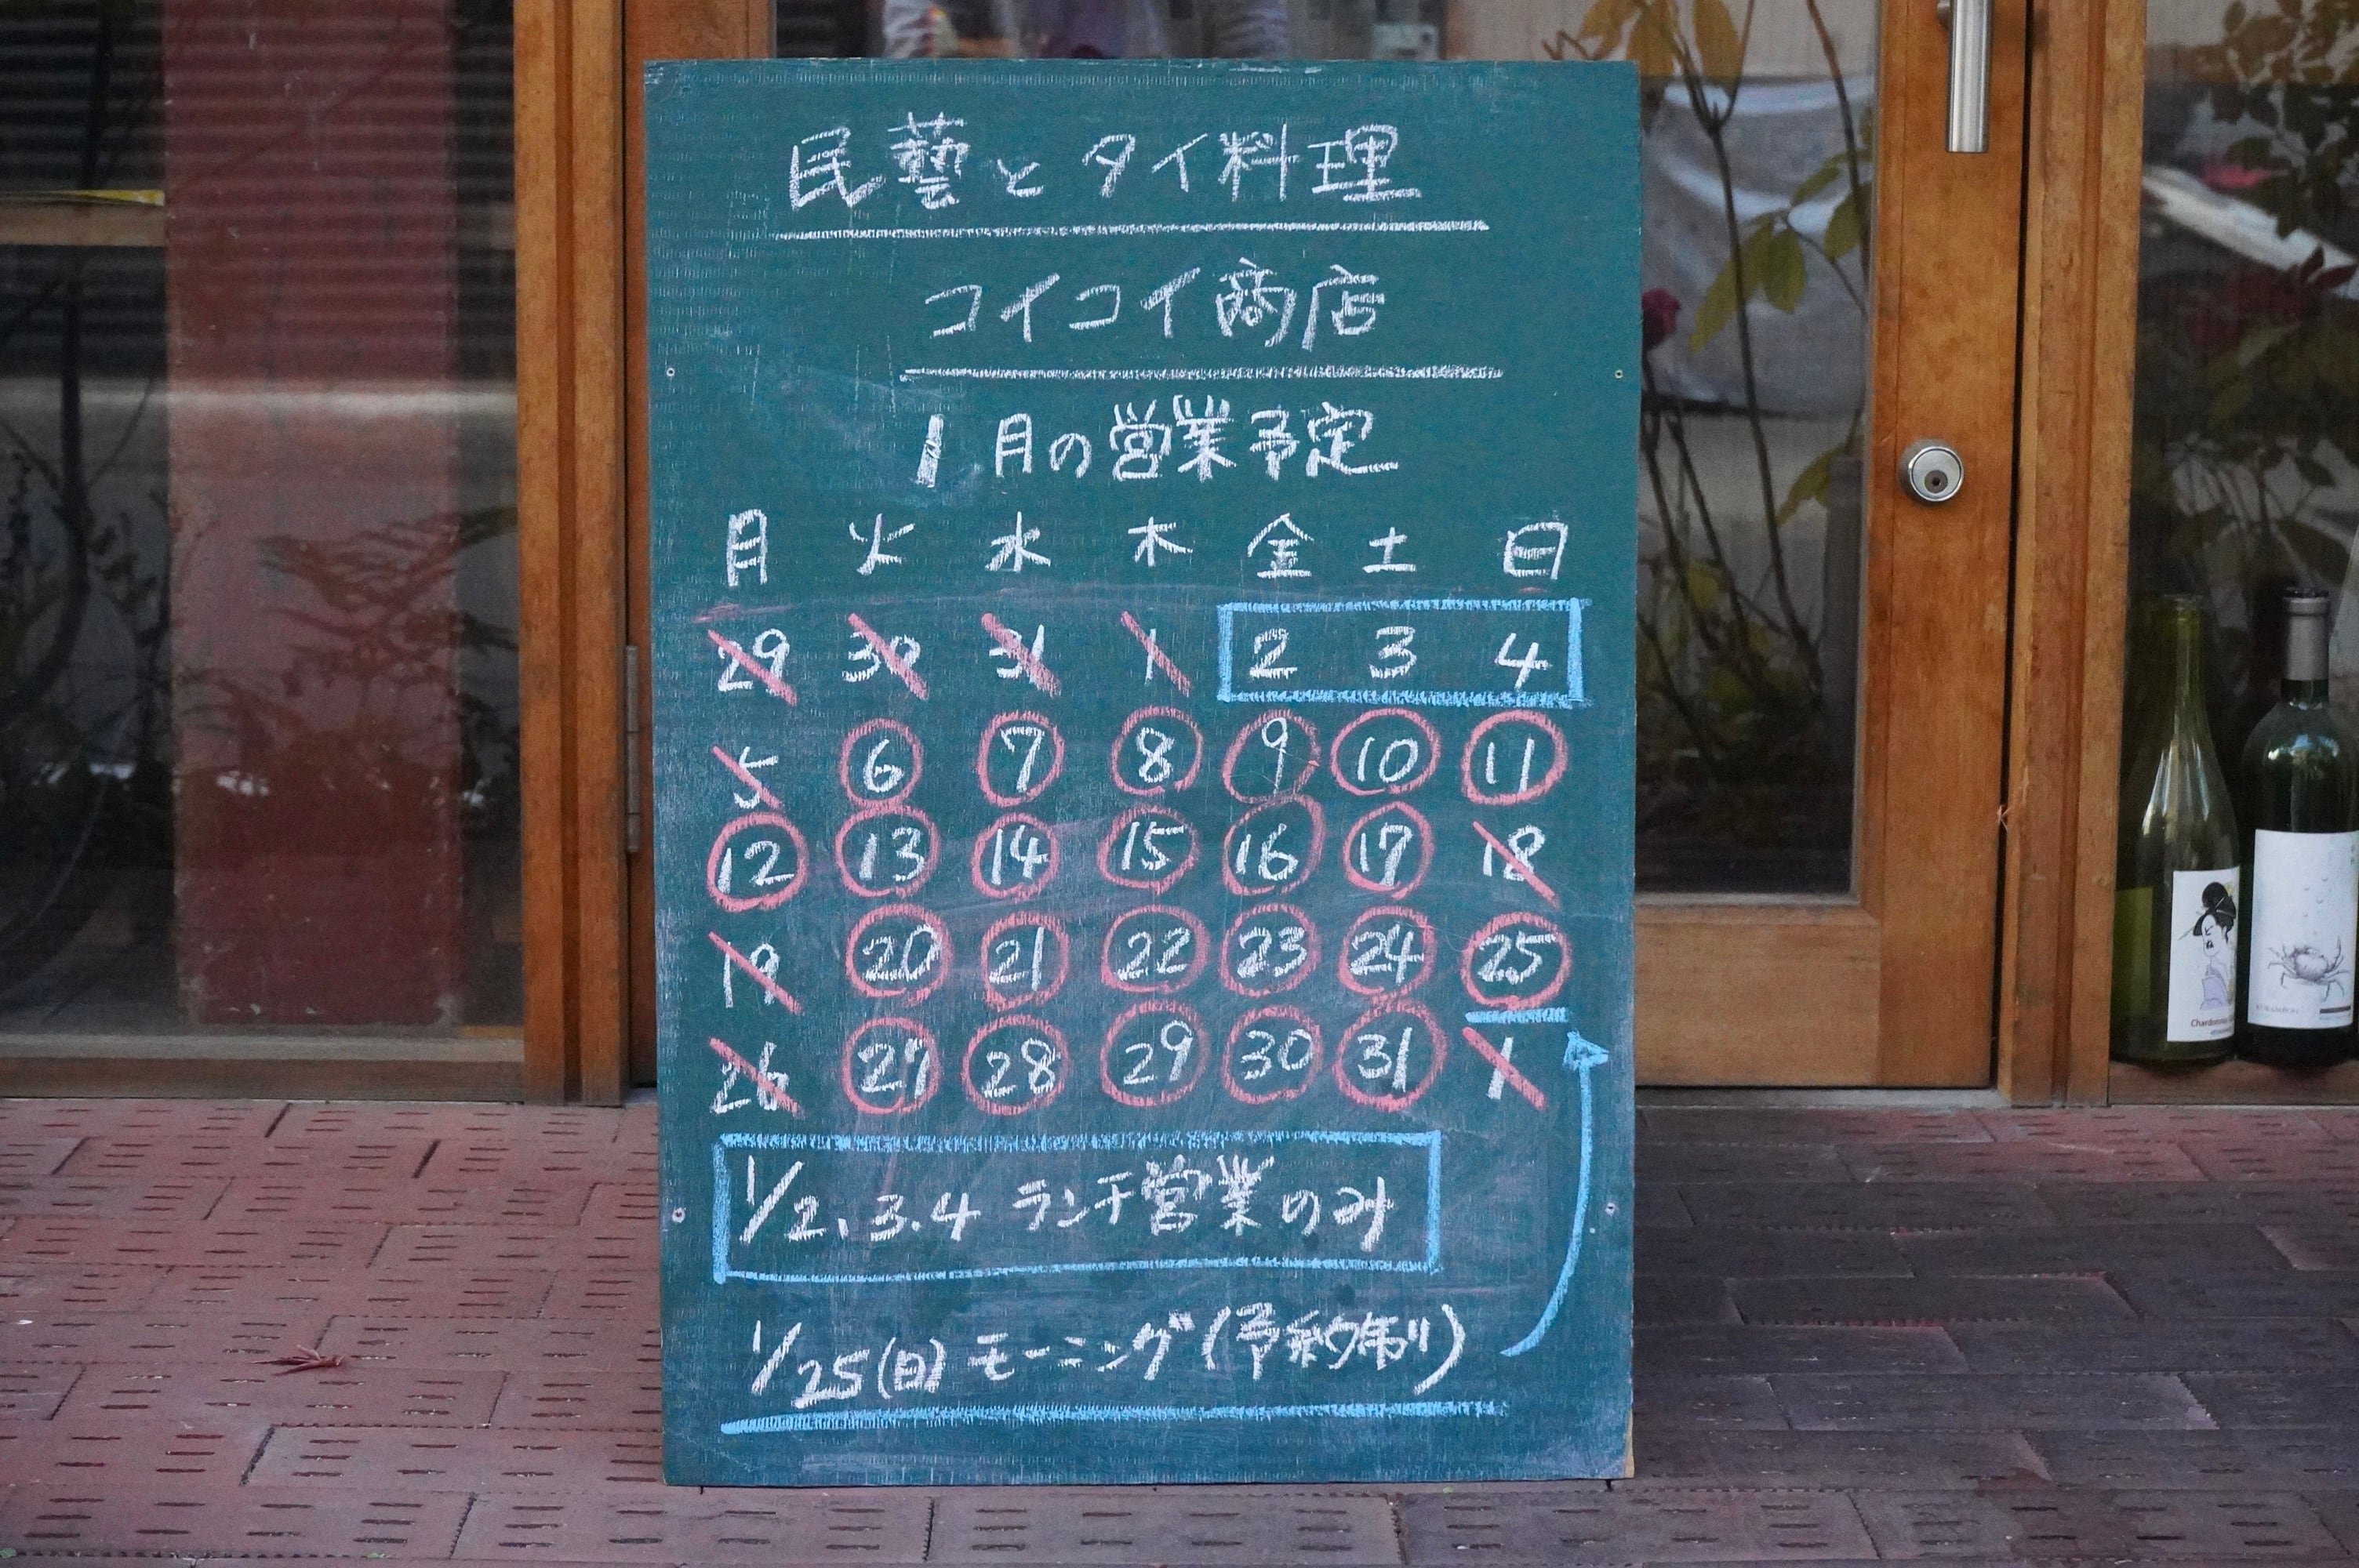 民藝とタイ料理
コイコイ商店
1月の営業予定
月 火 水 木 金 土 日
29 30 31 1 2 3 4
5 6 7 8 9 10 11
12 13 14 15 16 17 18
19 20 21 22 23 24 25
26 27 28 29 30 31 1
1/2.3.4 ランチ営業のみ
1/25(日)モーニング(予約制)
Chardonnay